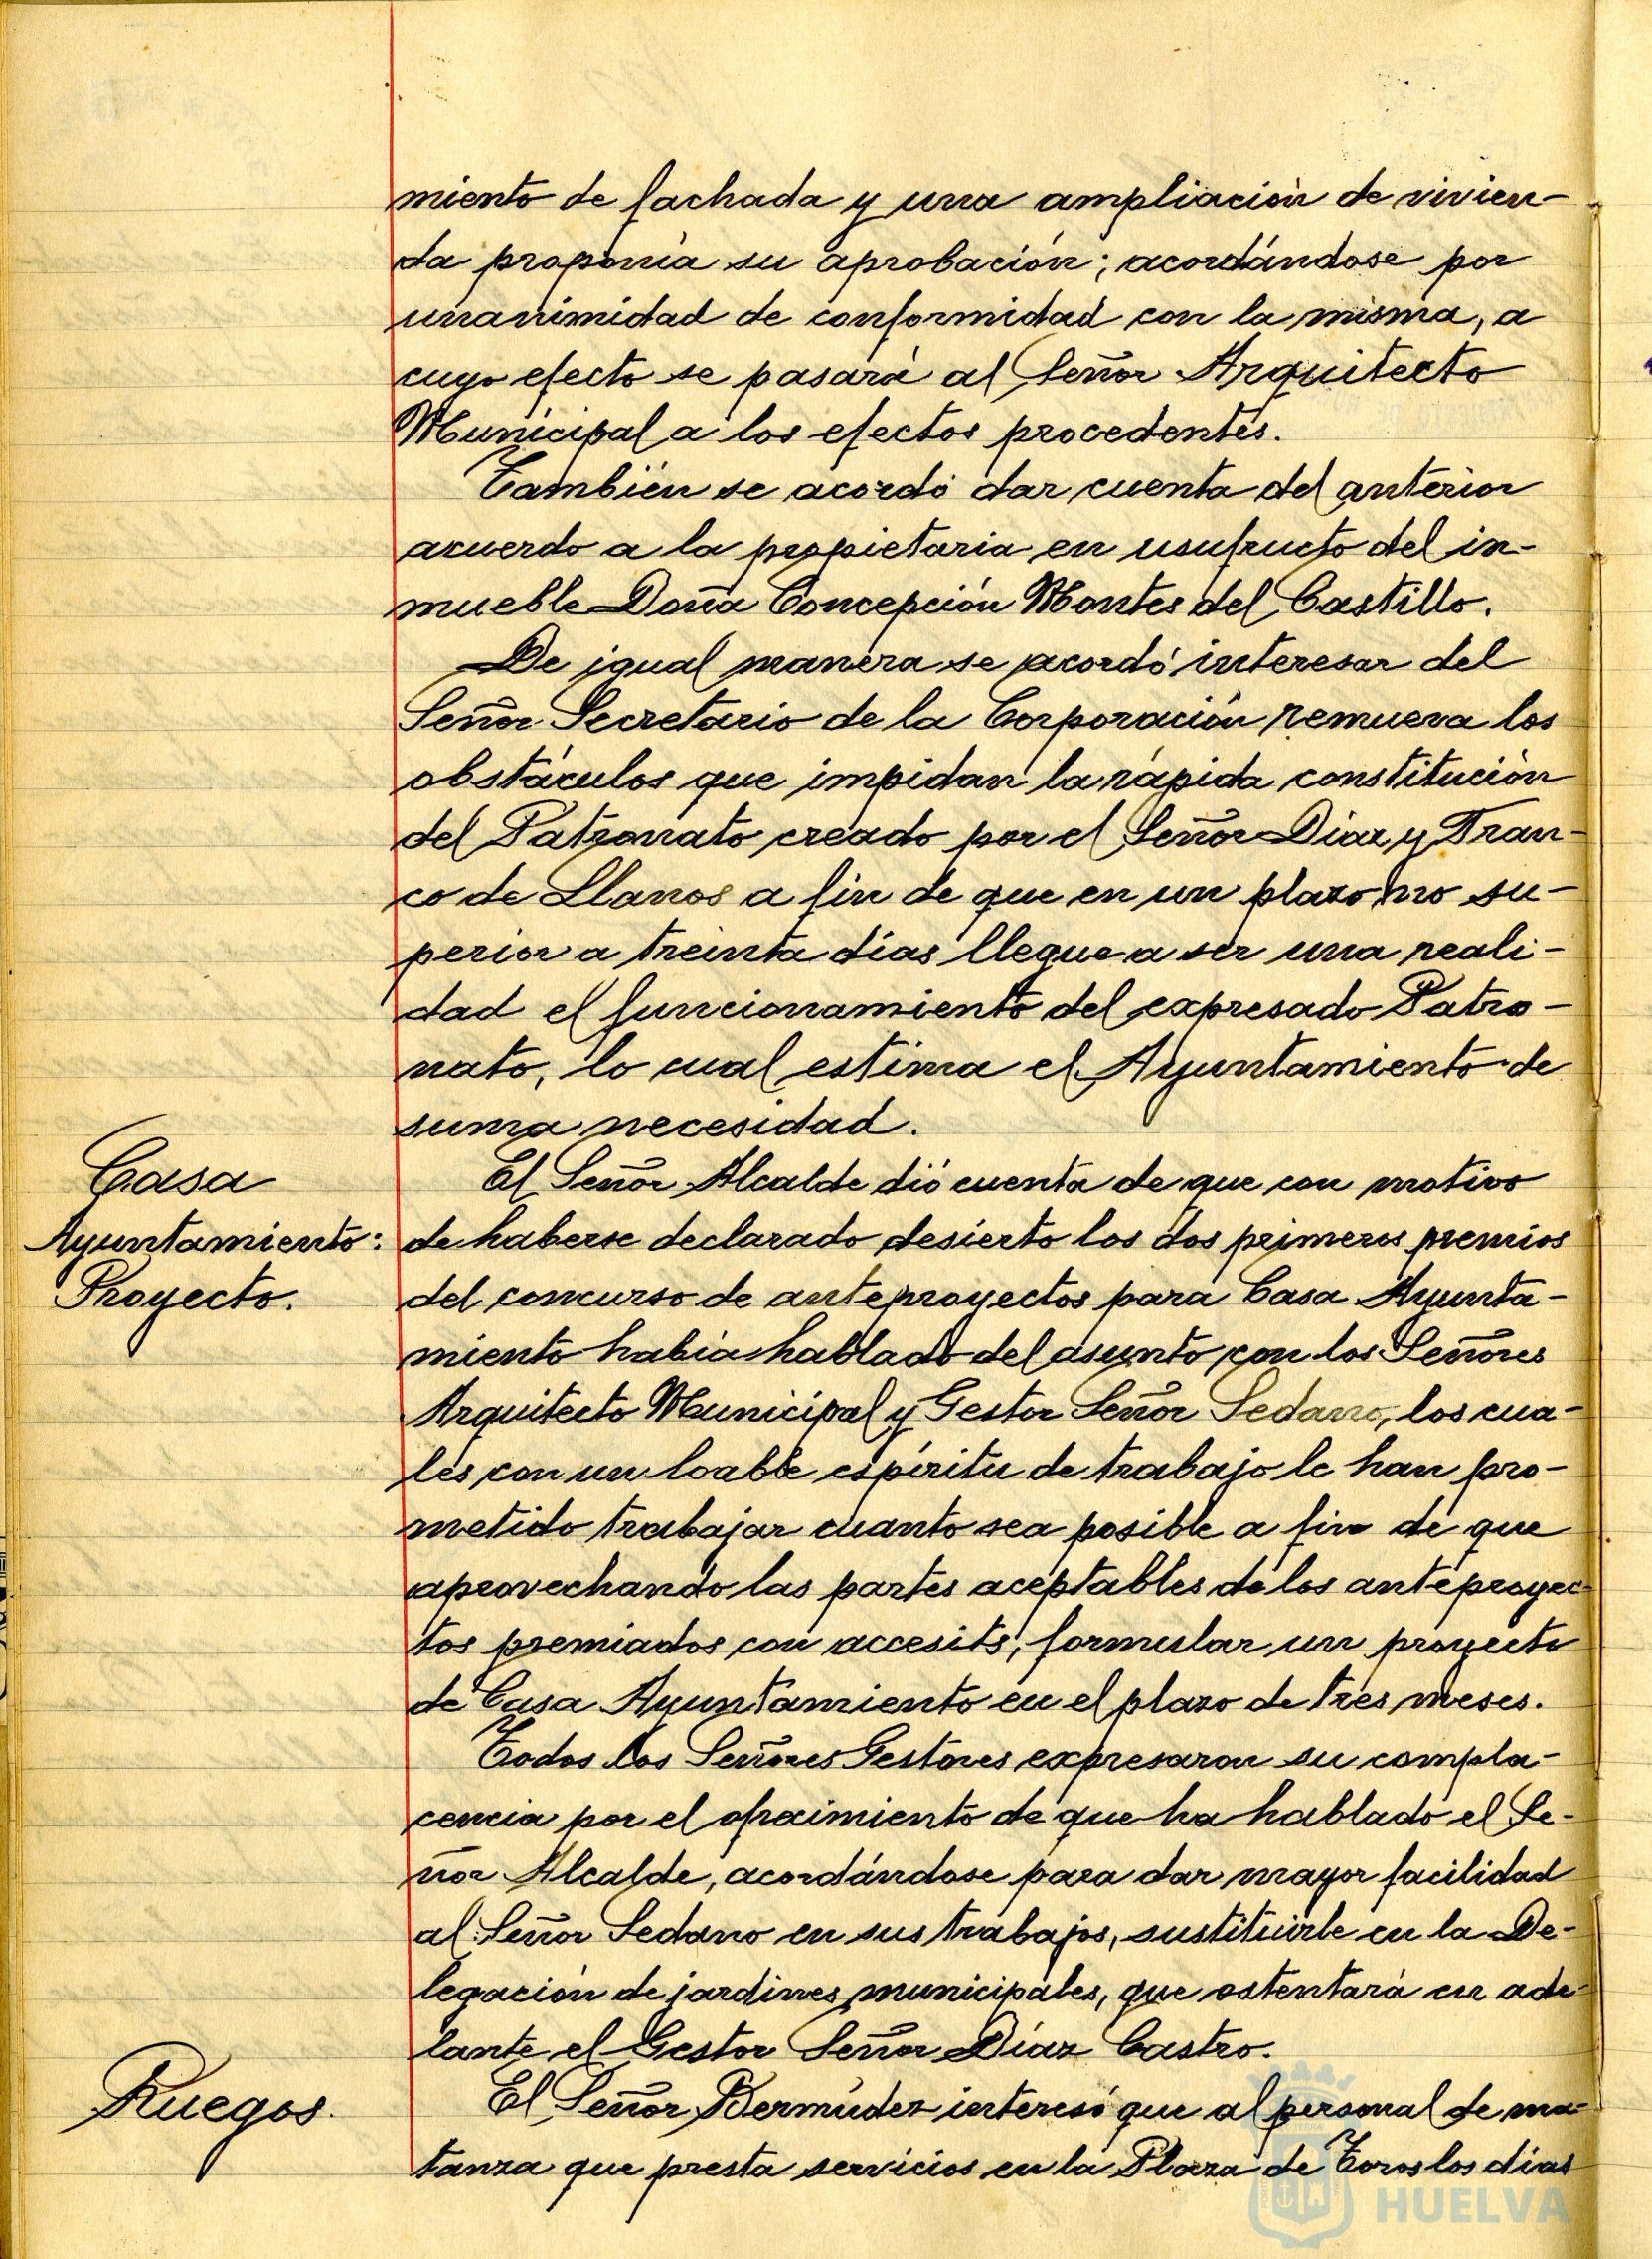 miento de fachada y una ampliación de vivien-
da proponía su aprobación; acordándose por
unanimidad de conformidad con la misma, a
cuyo efecto se pasará al Señor Arquitecto
Municipal a los efectos procedentes.
También se acordó dar cuenta del anterior
acuerdo a la propietaria en usufructo del in-
mueble Doña Concepción Montes del Castillo.
De igual manera se acordó interesar del
Señor Secretario de la Corporación remueva los
obstáculos que impidan la rápida constitución
del Patronato creado por el Señor Díaz y Fran-
co de Llanos a fin de que en un plazo no su-
perior a treinta días llegue a ser una reali-
dad el funcionamiento del expresado Patro-
nato, lo cual estima el Ayuntamiento de
suma necesidad.
Casa
Ayuntamiento:
Proyecto.
El Señor Alcalde dió cuenta de que con motivo
de haberse declarado desierto los dos primeros premios
del concurso de anteproyectos para Casa Ayunta-
miento había hablado del asunto con los Señores
Arquitecto Municipal y Gestor Señor Sedano, los cua-
les con un loable espíritu de trabajo le han pro-
metido trabajar cuanto sea posible a fin de que
aprovechando las partes aceptables de los anteproyec-
tos premiados con accesits, formular un proyecto
de Casa Ayuntamiento en el plazo de tres meses.
Todos los Señores Gestores expresaron su compla-
cencia por el ofrecimiento de que ha hablado el Se-
ñor Alcalde, acordándose para dar mayor facilidad
al Señor Sedano en sus trabajos, sustituirle en la De-
legación de jardines municipales, que ostentará en ade-
lante el Gestor Señor Díaz Castro.
Ruegos.
El Señor Bermúdez interesó que al personal de ma-
tanza que presta servicios en la Plaza de Toros los días
HUELVA